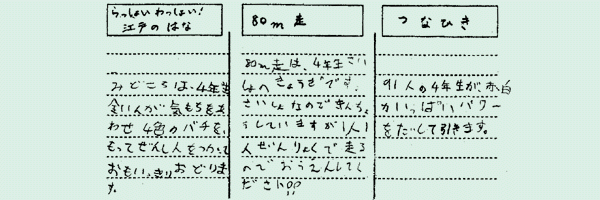 らっしょいわっしょい!
江戸のはな
みどころは、4年生
全いんが気もちをあ
わせ4色のバチを、
もってぜんしんをつかって
おもいっきりおどりま
す。
80m走
80m走は、4年生さい
しょへきょうぎです。
さいしょなのできんちょ
うしていますが1人1
人ぜんりょくで走る
のでおうえんしてく
ださい!!
つなひき
91人の4年生が、赤白
かいっぱいパワー
をだして引きます。